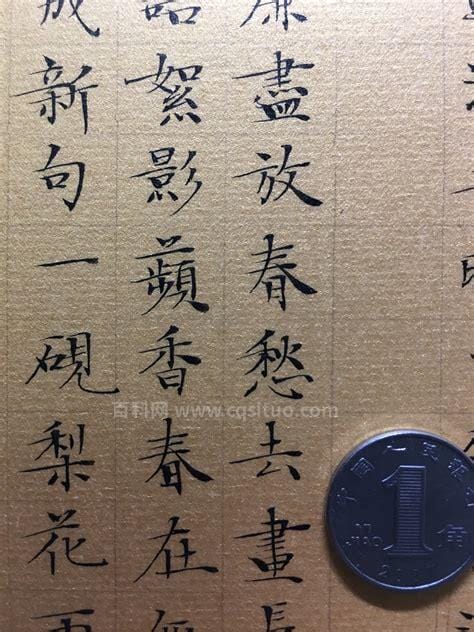 簾盡放春愁去晝長
語絮影蘋香春在無
成新句一硯梨花雨
百科网 www.cqsltuo.com
中国人民银
1角